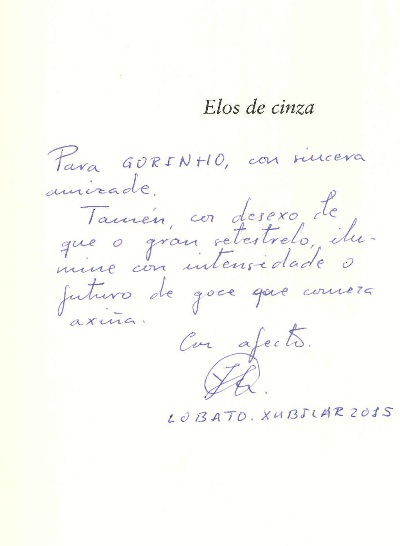 Elos de cinza
Para GORINHO, con sincera
amizade.
Tamén, con desexo de
que o gran setestrelo, ilu-
mine con intensidade o
futuro de goce que comeza
axiña.
Con afecto.
LOBATO. XUBILAR 2015